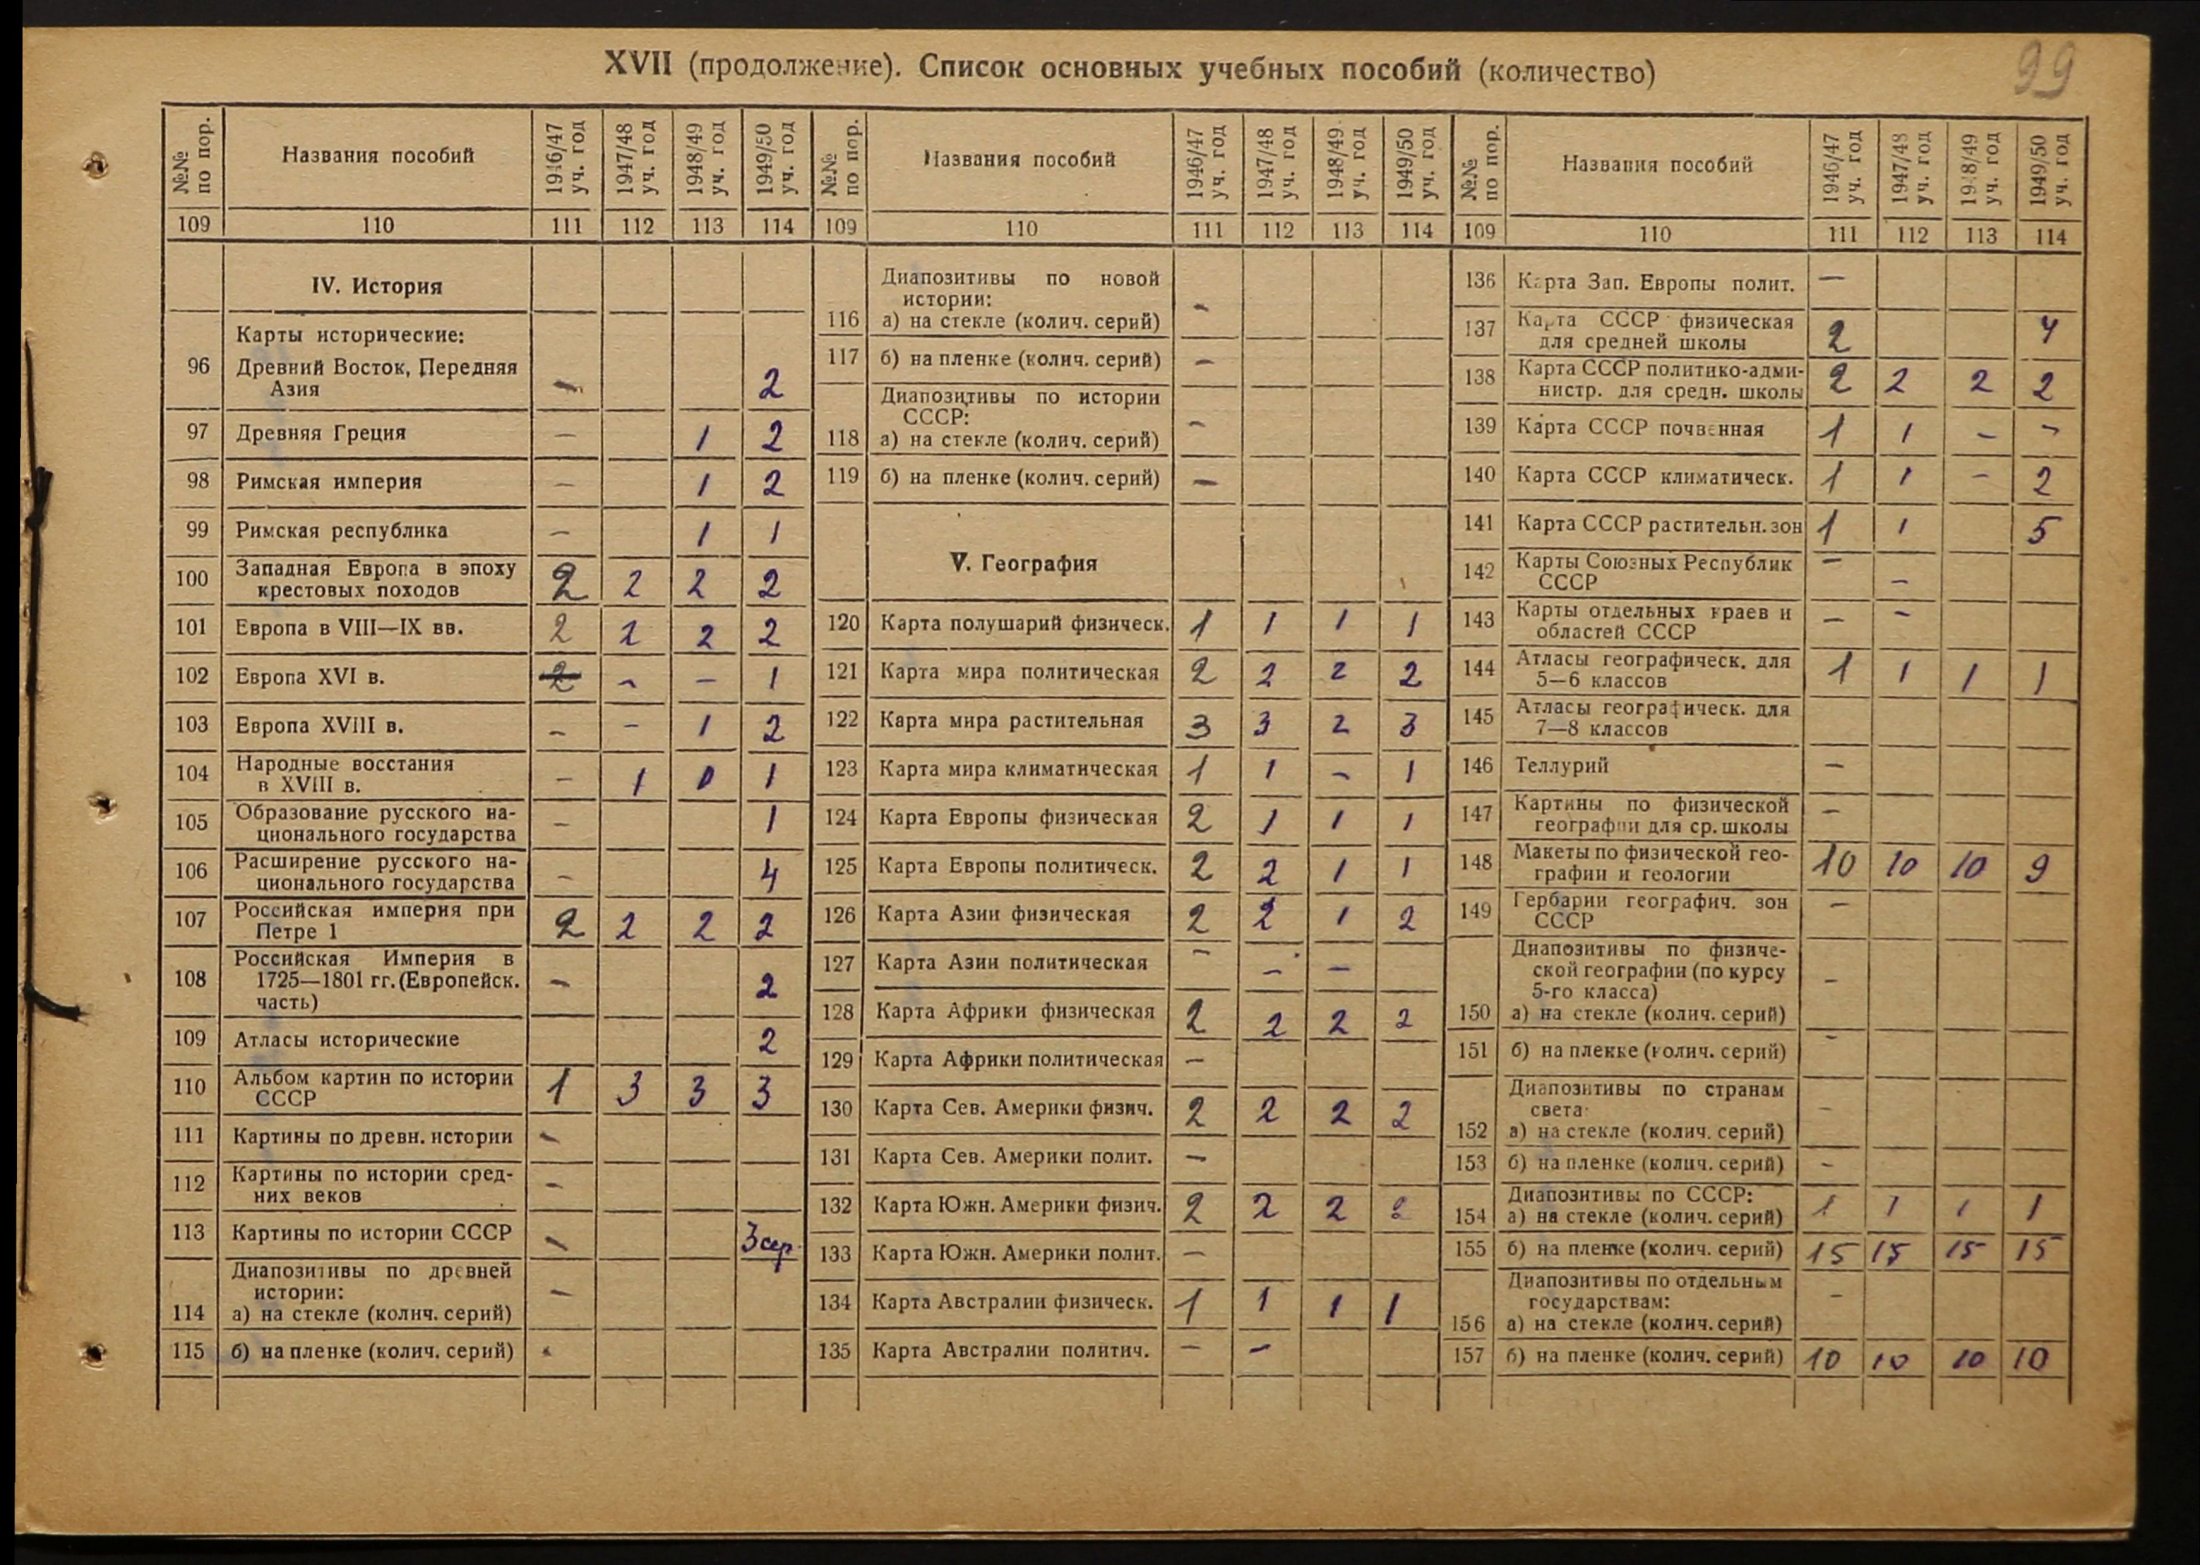 99
XVII (продолжение). Список основных учебных пособий (количество)
№№ по пор. Названия пособий 1946/47 уч. год 1947/48 уч. год 1948/49 уч. год 1949/50 уч. год
109 110 111 112 113 114
IV. История
Карты исторические:
96 Древний Восток, Передняя
Азия — 2
97 Древняя Греция — 1 2
98 Римская империя — 1 2
99 Римская республика — 1 1
100 Западная Европа в эпоху
крестовых походов 2 2 2 2
101 Европа в VIII—IX вв. 2 2 2 2
102 Европа XVI в. 2 — — 1
103 Европа XVIII в. — — 1 2
104 Народные восстания
в XVIII в. — 1 0 1
105 Образование русского на-
ционального государства — 1
106 Расширение русского на-
ционального государства — 4
107 Российская империя при
Петре 1 2 2 2 2
108 Российская Империя в
1725—1801 гг. (Европейск.
часть) — 2
109 Атласы исторические 2
110 Альбом картин по истории
СССР 1 3 3 3
111 Картины по древн. истории —
112 Картины по истории сред-
них веков —
113 Картины по истории СССР — 3 сер.
Диапозитивы по древней
истории:
114 а) на стекле (колич. серий) —
115 б) на пленке (колич. серий) -
№№ по пор. Названия пособий 1946/47 уч. год 1947/48 уч. год 1948/49 уч. год 1949/50 уч. год
109 110 111 112 113 114
Диапозитивы по новой
истории:
116 а) на стекле (колич. серий) —
117 б) на пленке (колич. серий) —
Диапозитивы по истории
СССР:
118 а) на стекле (колич. серий) —
119 б) на пленке (колич. серий) —
V. География
120 Карта полушарий физическ. 1 1 1 1
121 Карта мира политическая 2 2 2 2
122 Карта мира растительная 3 3 2 3
123 Карта мира климатическая 1 1 — 1
124 Карта Европы физическая 2 1 1 1
125 Карта Европы политическ. 2 2 1 1
126 Карта Азии физическая 2 2 1 2
127 Карта Азии политическая — — —
128 Карта Африки физическая 2 2 2 2
129 Карта Африки политическая —
130 Карта Сев. Америки физич. 2 2 2 2
131 Карта Сев. Америки полит. —
132 Карта Южн. Америки физич. 2 2 2 2
133 Карта Южн. Америки полит. —
134 Карта Австралии физическ. 1 1 1 1
135 Карта Австралии политич. — —
№№ по пор. Названия пособий 1946/47 уч. год 1947/48 уч. год 1948/49 уч. год 1949/50 уч. год
109 110 111 112 113 114
136 Карта Зап. Европы полит. —
137 Карта СССР физическая
для средней школы 2 4
138 Карта СССР политико-адми-
нистр. для средн. школы 2 2 2 2
139 Карта СССР почвенная 1 1 — —
140 Карта СССР климатическ. 1 1 — 2
141 Карта СССР растительн. зон 1 1 5
142 Карты Союзных Республик
СССР — —
143 Карты отдельных краев и
областей СССР — —
144 Атласы географическ. для
5—6 классов 1 1 1 1
145 Атласы географическ. для
7—8 классов
146 Теллурий —
147 Картины по физической
географии для ср. школы —
148 Макеты по физической гео-
графии и геологии 10 10 10 9
149 Гербарии географич. зон
СССР —
Диапозитивы по физиче-
ской географии (по курсу
5-го класса)
150 а) на стекле (колич. серий) —
151 б) на пленке (колич. серий) —
Диапозитивы по странам
света:
152 а) на стекле (колич. серий) —
153 б) на пленке (колич. серий) —
Диапозитивы по СССР:
154 а) на стекле (колич. серий) 1 1 1 1
155 б) на пленке (колич. серий) 15 15 15 15
Диапозитивы по отдельным
государствам:
156 а) на стекле (колич. серий) —
157 б) на пленке (колич. серий) 10 10 10 10